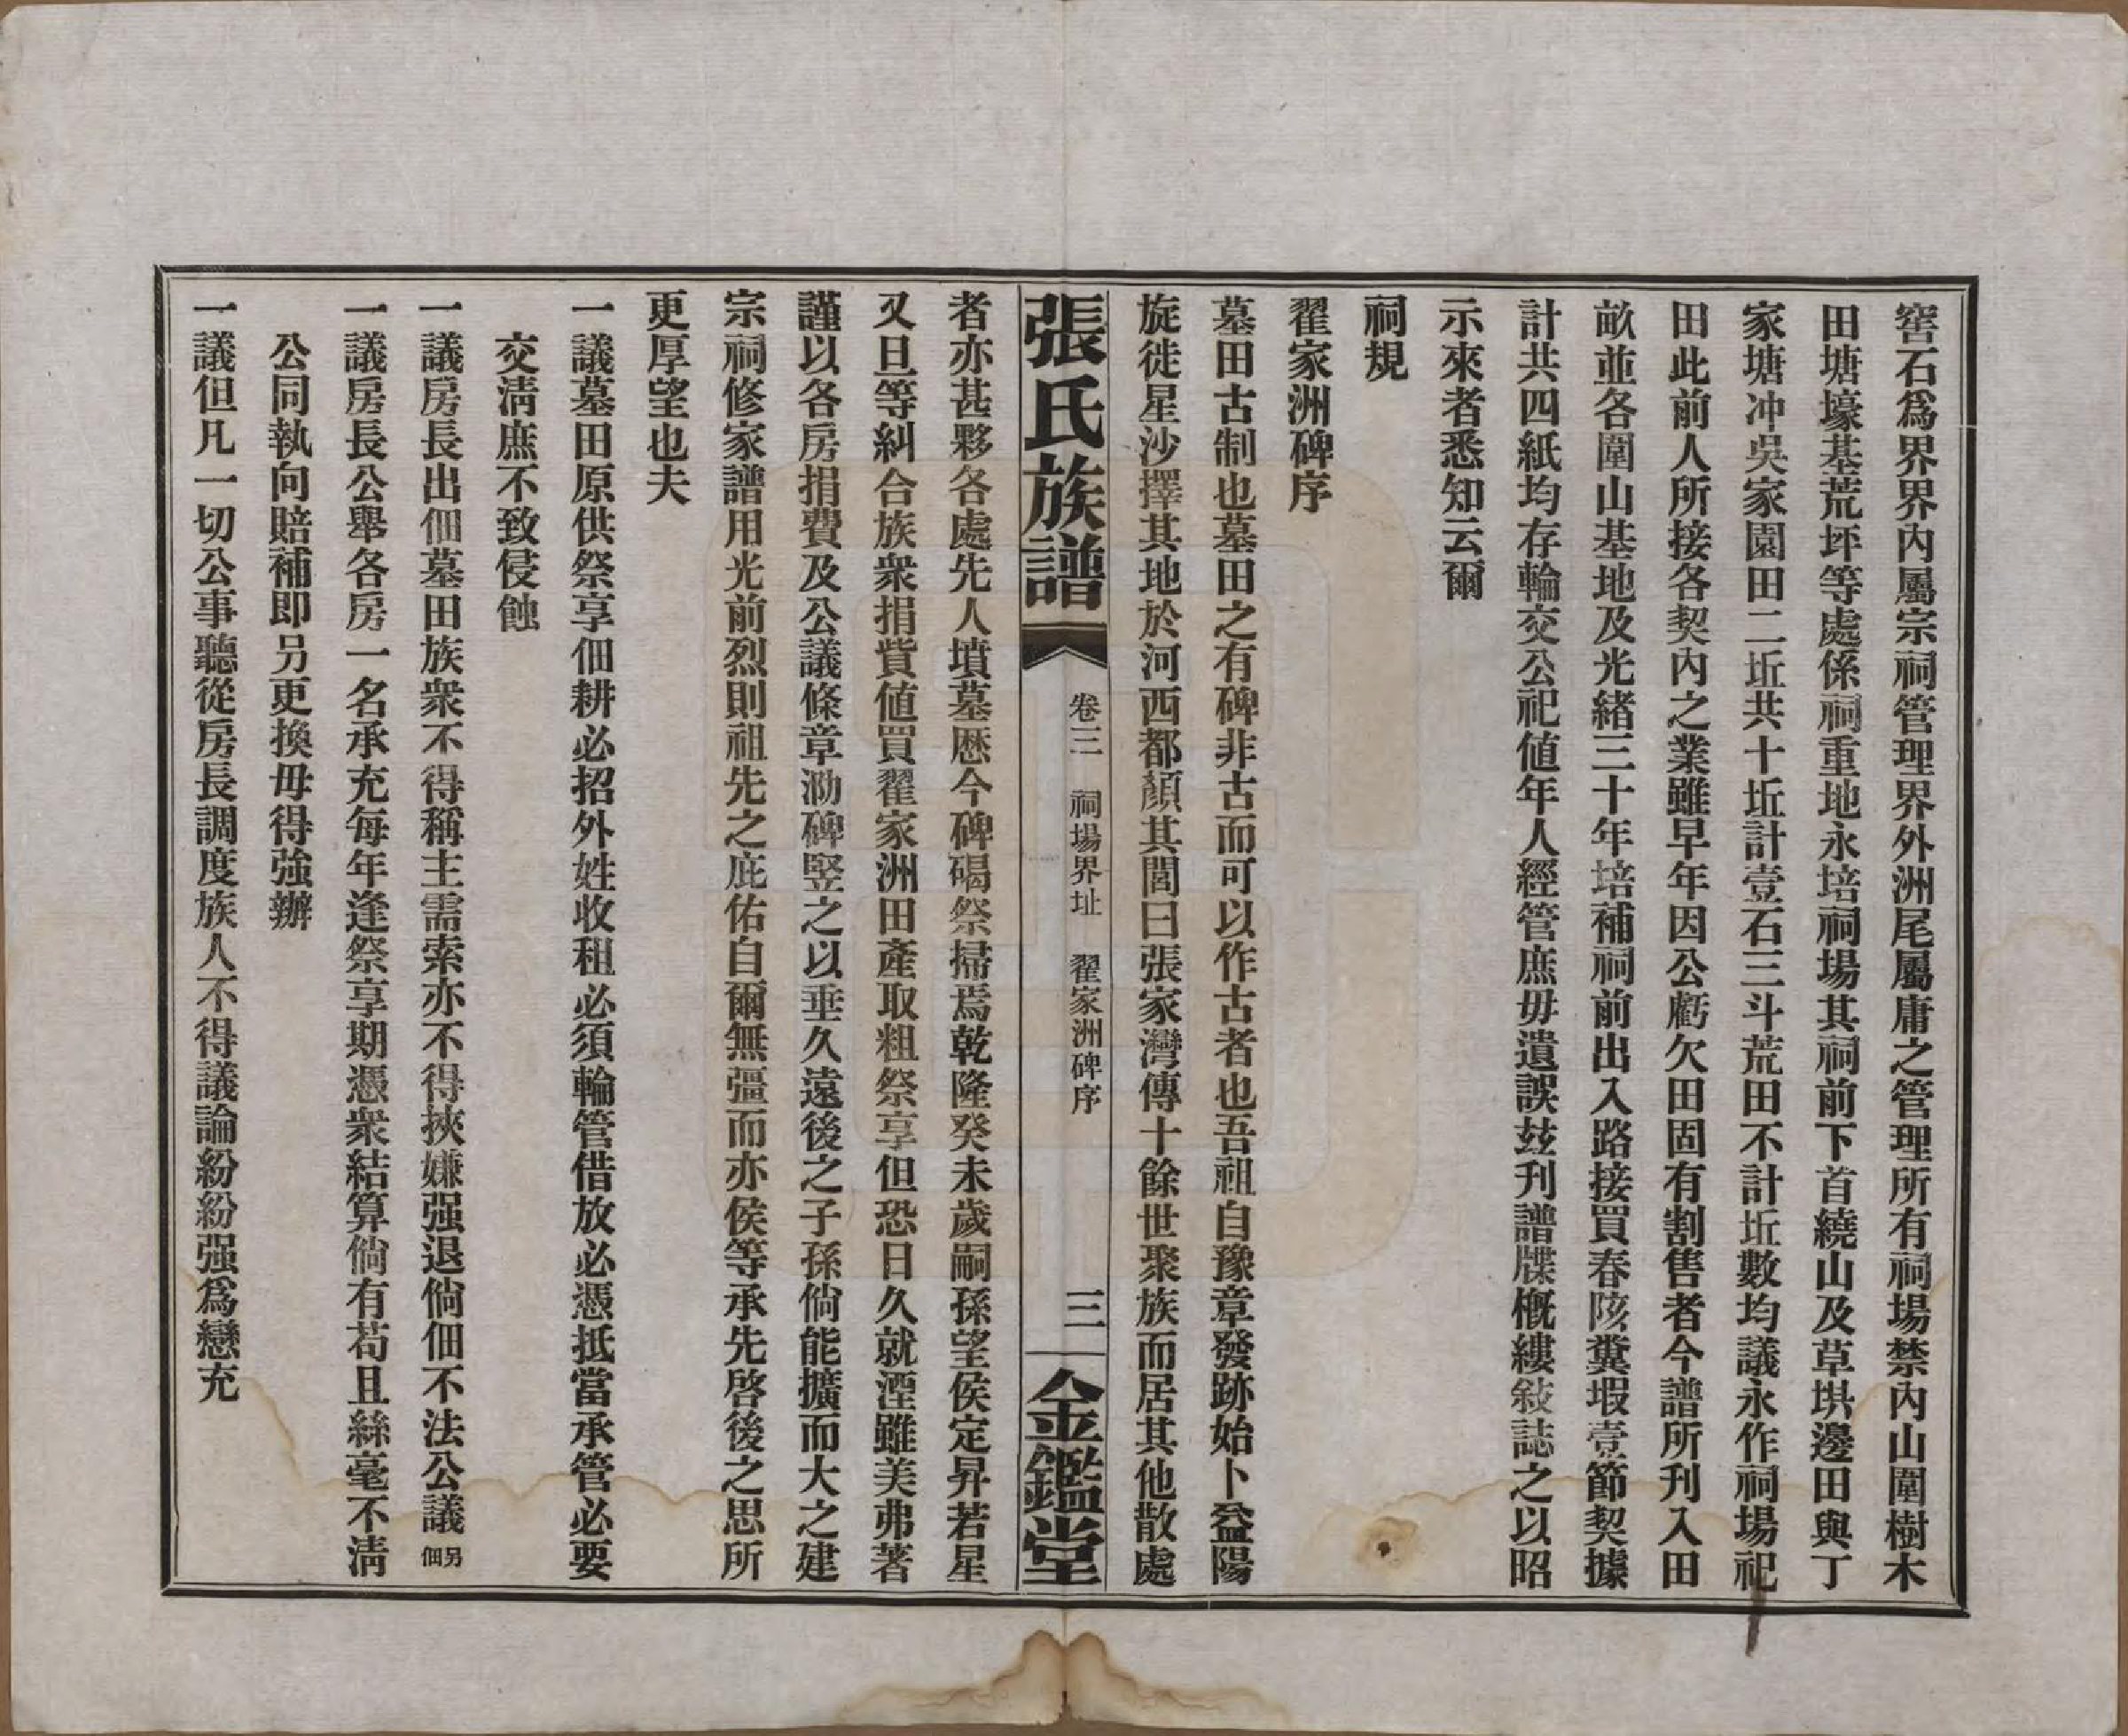 窖石爲界界內屬宗祠管理界外洲尾屬庸之管理所有祠場禁內山圍樹木
田塘壕基荒坪等處係祠重地永培祠場其祠前下首繞山及草垬邊田與丁
家塘冲吳家園田二坵共十坵計壹石三斗荒田不計坵數均議永作祠場祀
田此前人所接各契內之業雖早年因公虧欠田固有割售者今譜所刊入田
畝並各圍山基地及光緒三十年培補祠前出入路接買春陔糞塅壹節契據
計共四紙均存輪交公祀值年人經管庶毋遺誤玆刊譜牒概縷敍誌之以昭
示來者悉知云爾
祠規
翟家洲碑序
墓田古制也墓田之有碑非古而可以作古者也吾祖自豫章發跡始卜益陽
旋徙星沙擇其地於河西都顏其閭曰張家灣傳十餘世聚族而居其他散處
張氏族譜 卷三 祠場界址 翟家洲碑序 三 金鑑堂
者亦甚夥各處先人墳墓歷今碑碣祭掃焉乾隆癸未歲嗣孫望侯定昇若星
又旦等糾合族衆捐貲値買翟家洲田產取粗祭享但恐日久就湮雖美弗著
謹以各房捐費及公議條章泐碑竪之以垂久遠後之子孫倘能擴而大之建
宗祠修家譜用光前烈則祖先之庇佑自爾無彊而亦侯等承先啓後之思所
更厚望也夫
一議墓田原供祭享佃耕必招外姓收租必須輪管借放必憑抵當承管必要
交淸庶不致侵蝕
一議房長出佃墓田族衆不得稱主需索亦不得挾嫌强退倘佃不法公議另佃
一議房長公舉各房一名承充每年逢祭享期憑衆結算倘有苟且絲毫不淸
公同執向賠補即另更換毋得強辦
一議但凡一切公事聽從房長調度族人不得議論紛紛强爲戀充